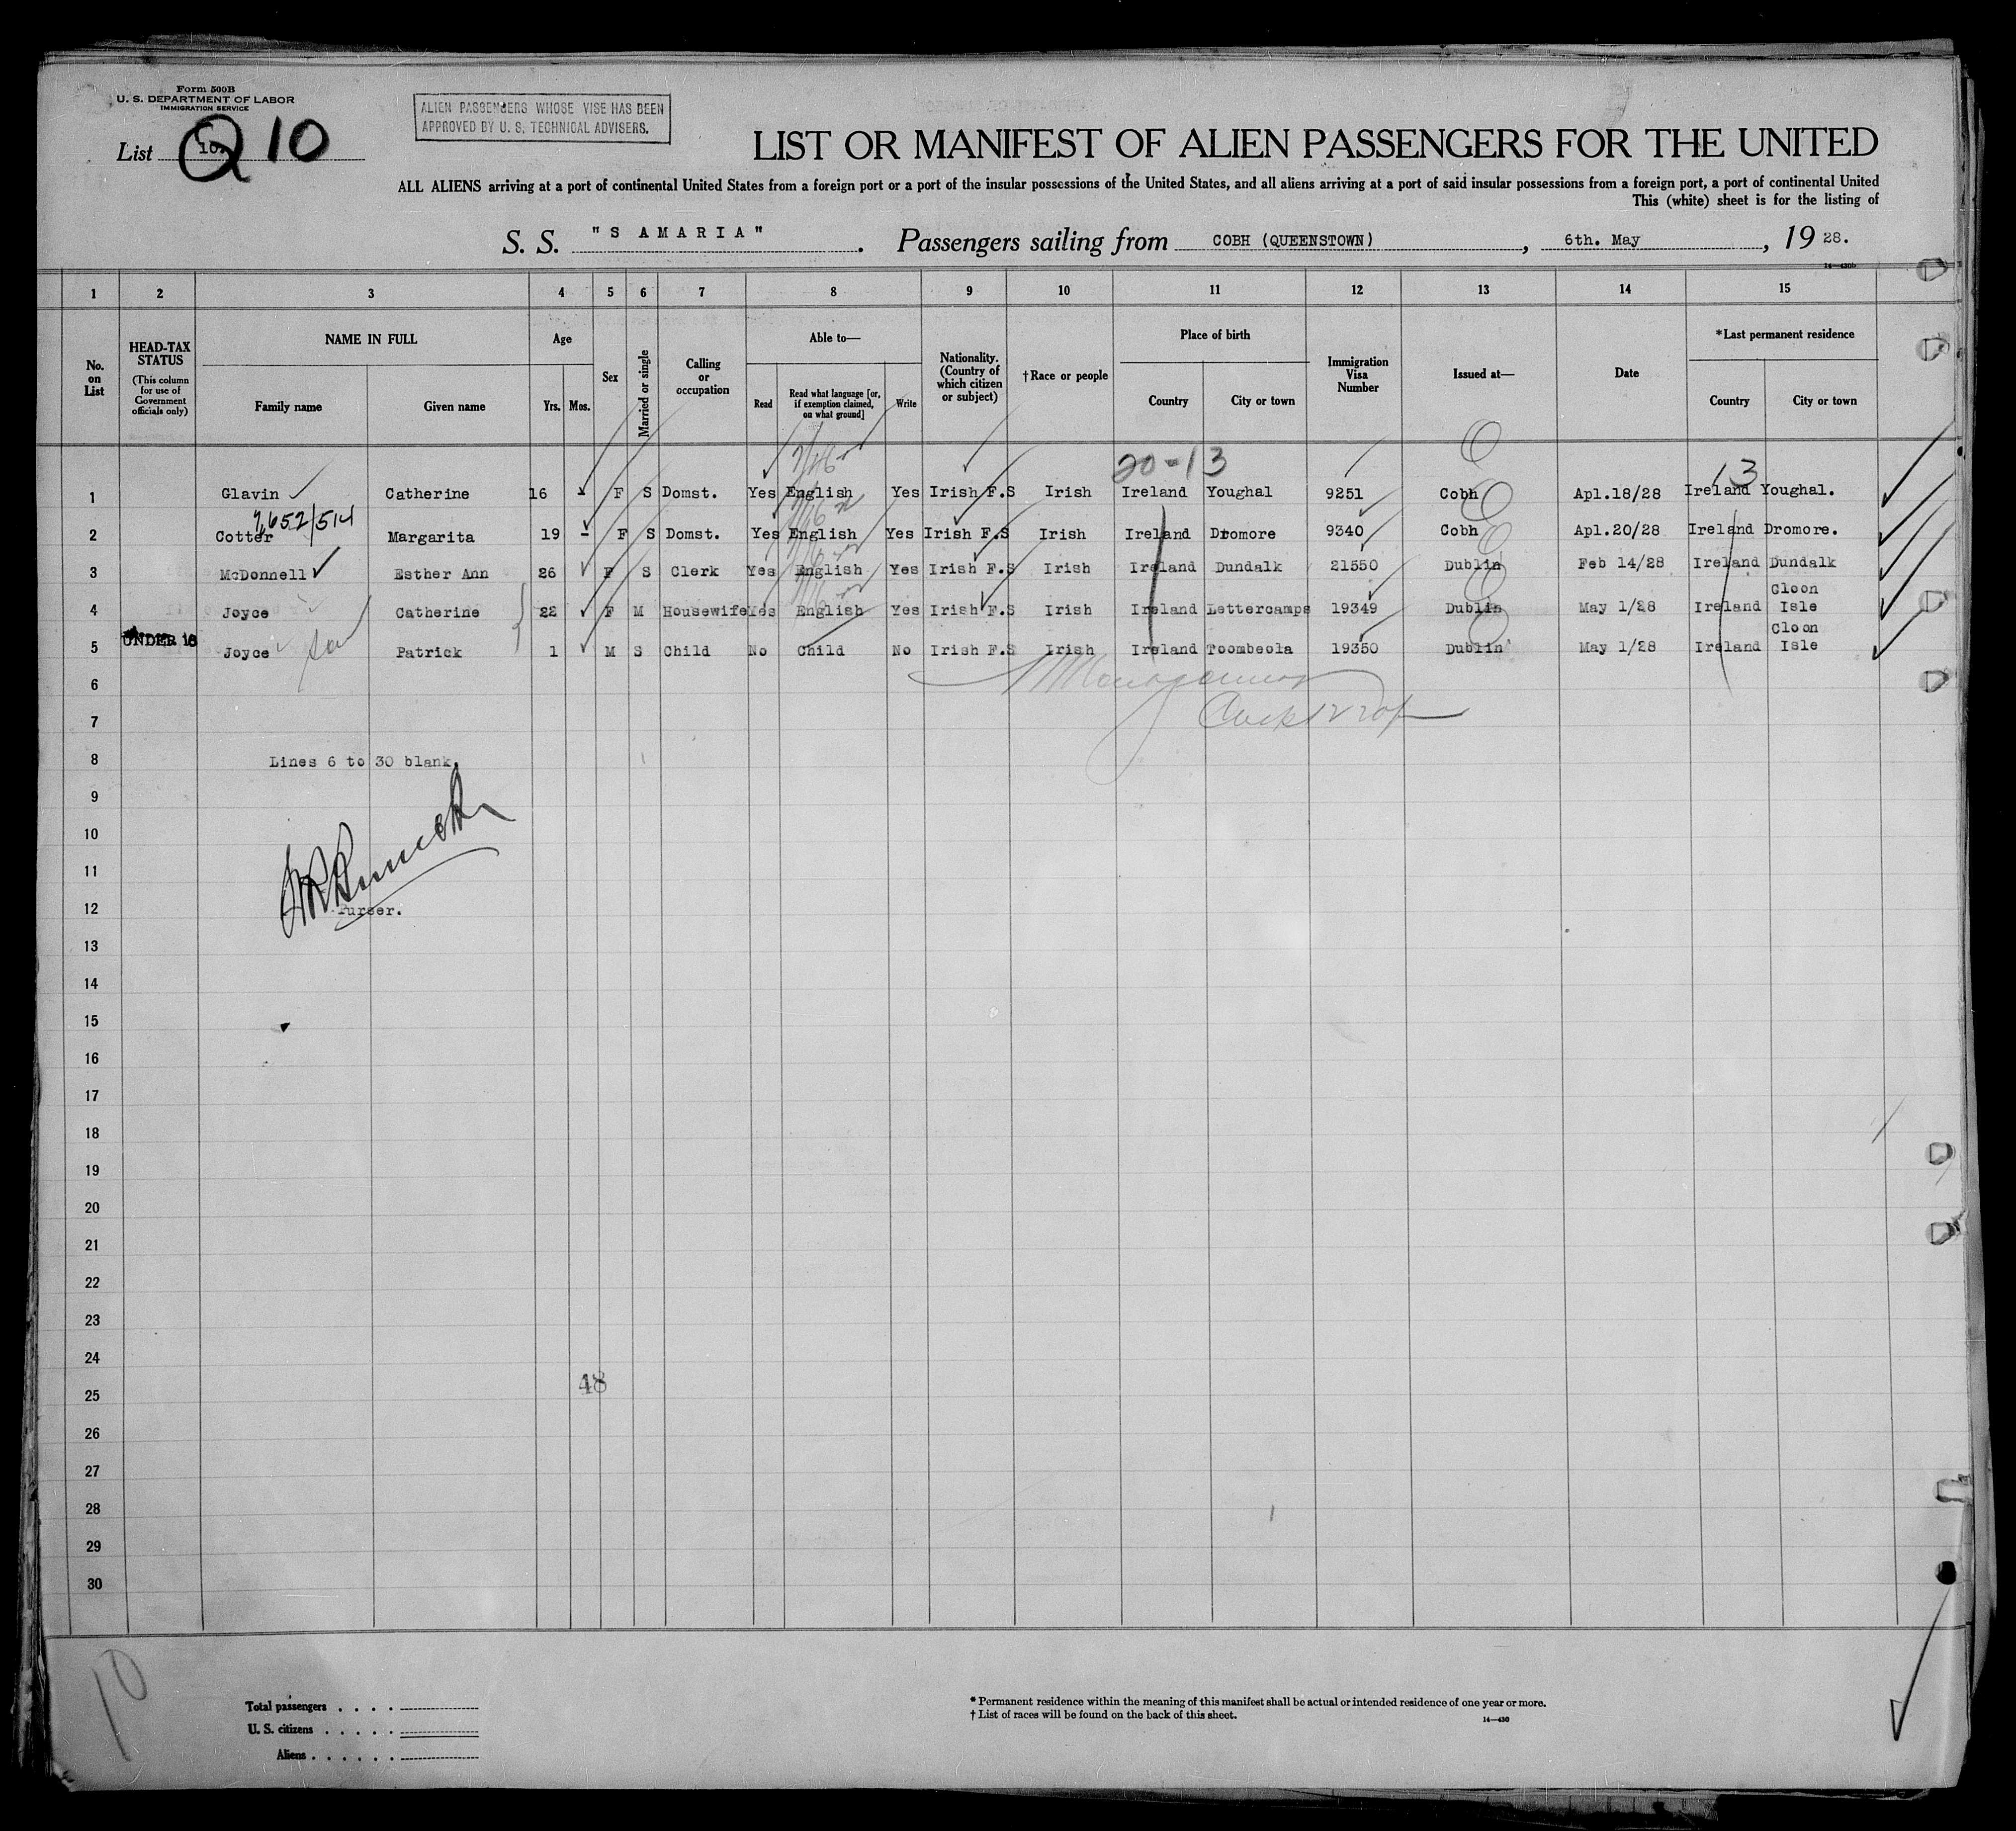 Form 500B
U. S. DEPARTMENT OF LABOR
IMMIGRATION SERVICE
List 10. 10
ALIEN PASSENGERS WHOSE VISE HAS BEEN
APPROVED BY U. S. TECHNICAL ADVISERS.
LIST OR MANIFEST OF ALIEN PASSENGERS FOR THE UNITED
ALL ALIENS arriving at a port of continental United States from a foreign port or a port of the insular possessions of the United States, and all aliens arriving at a port of said insular possessions from a foreign port, a port of continental United
This (white) sheet is for the listing of
S. S. "S A M A R I A". Passengers sailing from COBH (QUEENSTOWN), 6th. May, 19 28.
1 2 3 4 5 6 7 8 9 10 11 12 13 14 15
No. on List
HEAD-TAX STATUS (This column for use of Government officials only)
NAME IN FULL
Family name Given name
Age
Yrs. Mos.
Sex
Married or single
Calling or occupation
Able to—
Read Read what language [or, if exemption claimed, on what ground] Write
Nationality. (Country of which citizen or subject)
†Race or people
Place of birth
Country City or town
Immigration Visa Number
Issued at—
Date
*Last permanent residence
Country City or town
20-13 13
1 Glavin Catherine 16 - F S Domst. Yes English Yes Irish F.S Irish Ireland Youghal 9251 Cobh Apl.18/28 Ireland Youghal.
7,652/514
2 Cotter Margarita 19 - F S Domst. Yes English Yes Irish F.S Irish Ireland Dromore 9340 Cobh Apl.20/28 Ireland Dromore.
3 McDonnell Esther Ann 26 F S Clerk Yes English Yes Irish F.S Irish Ireland Dundalk 21550 Dublin Feb 14/28 Ireland Dundalk
4 Joyce Catherine 22 F M Housewife Yes English Yes Irish F.S Irish Ireland Lettercamps 19349 Dublin May 1/28 Ireland Cloon Isle
UNDER 16
5 Joyce Patrick 1 M S Child No Child No Irish F.S Irish Ireland Toombeola 19350 Dublin May 1/28 Ireland Cloon Isle
6
7
8 Lines 6 to 30 blank.
9
10
11
12 Purser.
13
14
15
16
17
18
19
20
21
22
23
24
48
25
26
27
28
29
30
10
Total passengers . . . .
U. S. citizens . . . . .
Aliens . . . . . .
* Permanent residence within the meaning of this manifest shall be actual or intended residence of one year or more.
† List of races will be found on the back of this sheet.
14—430